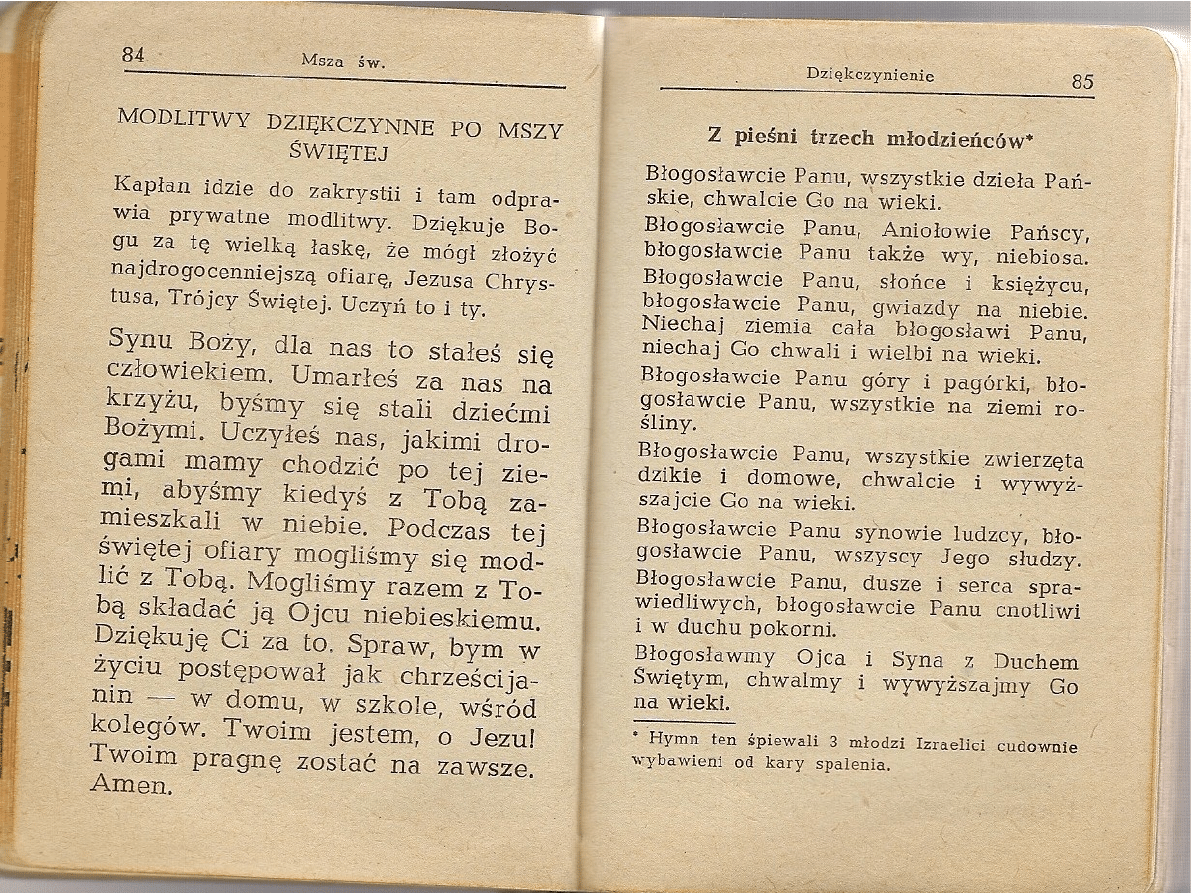 84
Msza św.
MODLITWY DZIĘKCZYNNE PO MSZY
ŚWIĘTEJ
Kapłan idzie do zakrystii i tam odpra-
wia prywatne modlitwy. Dziękuje Bo-
gu za tę wielką łaskę, że mógł złożyć
najdrogocenniejszą ofiarę, Jezusa Chrys-
tusa, Trójcy Świętej. Uczyń to i ty.
Synu Boży, dla nas to stałeś się
człowiekiem. Umarłeś za nas na
krzyżu, byśmy się stali dziećmi
Bożymi. Uczyłeś nas, jakimi dro-
gami mamy chodzić po tej zie-
mi, abyśmy kiedyś z Tobą za-
mieszkali w niebie. Podczas tej
świętej ofiary mogliśmy się mod-
lić z Tobą. Mogliśmy razem z To-
bą składać ją Ojcu niebieskiemu.
Dziękuję Ci za to. Spraw, bym w
życiu postępował jak chrześcija-
nin — w domu, w szkole, wśród
kolegów. Twoim jestem, o Jezu!
Twoim pragnę zostać na zawsze.
Amen.
Dziękczynienie
85
Z pieśni trzech młodzieńców*
Błogosławcie Panu, wszystkie dzieła Pań-
skie, chwalcie Go na wieki.
Błogosławcie Panu, Aniołowie Pańscy,
błogosławcie Panu także wy, niebiosa.
Błogosławcie Panu, słońce i księżycu,
błogosławcie Panu, gwiazdy na niebie.
Niechaj ziemia cała błogosławi Panu,
niechaj Go chwali i wielbi na wieki.
Błogosławcie Panu góry i pagórki, bło-
gosławcie Panu, wszystkie na ziemi ro-
śliny.
Błogosławcie Panu, wszystkie zwierzęta
dzikie i domowe, chwalcie i wywyż-
szajcie Go na wieki.
Błogosławcie Panu synowie ludzcy, bło-
gosławcie Panu, wszyscy Jego słudzy.
Błogosławcie Panu, dusze i serca spra-
wiedliwych, błogosławcie Panu cnotliwi
i w duchu pokorni.
Błogosławmy Ojca i Syna z Duchem
Świętym, chwalmy i wywyższajmy Go
na wieki.
* Hymn ten śpiewali 3 młodzi Izraelici cudownie
wybawieni od kary spalenia.